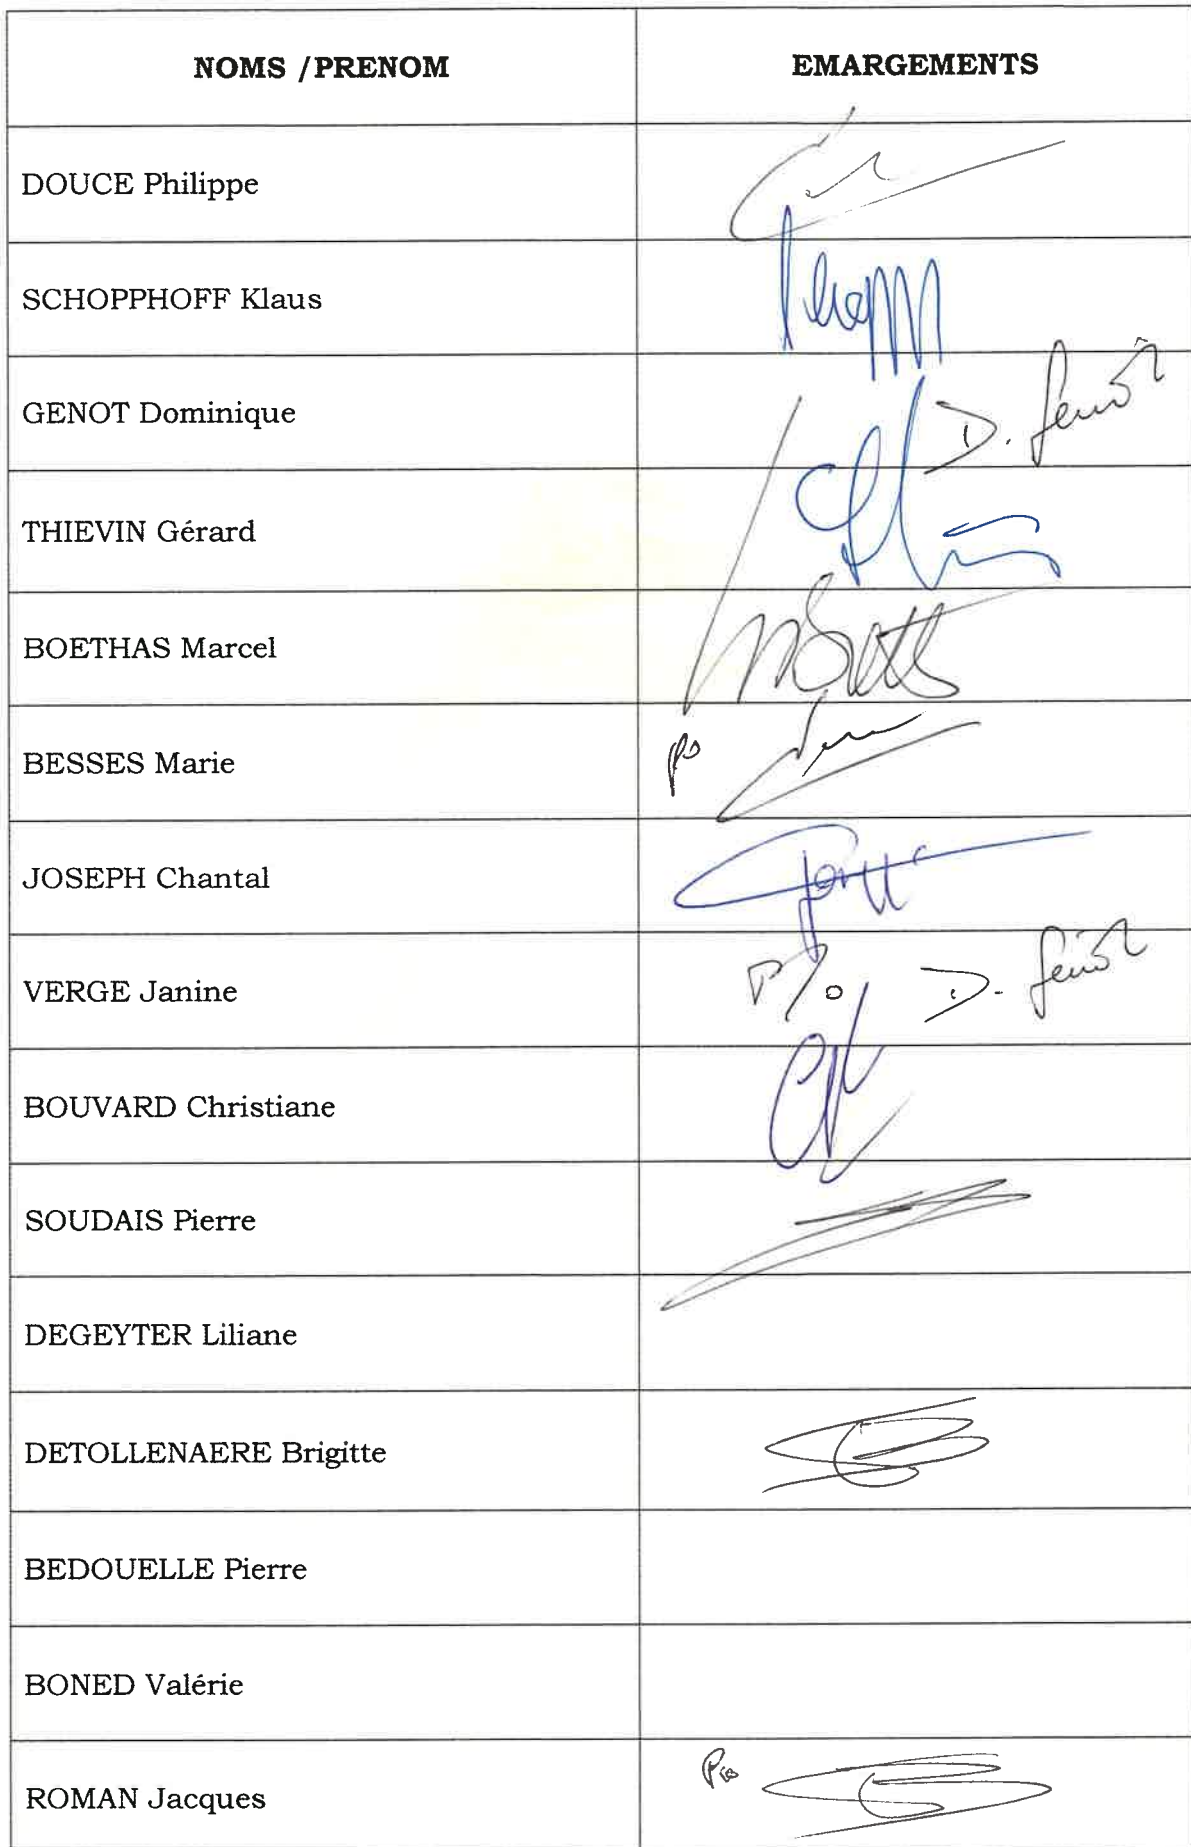 NOMS / PRENOM EMARGEMENTS
DOUCE Philippe
SCHOPPHOFF Klaus
GENOT Dominique D. Genot
THIEVIN Gérard
BOETHAS Marcel
BESSES Marie po
JOSEPH Chantal
VERGE Janine P/o D. Genot
BOUVARD Christiane
SOUDAIS Pierre
DEGEYTER Liliane
DETOLLENAERE Brigitte
BEDOUELLE Pierre
BONED Valérie
ROMAN Jacques Po